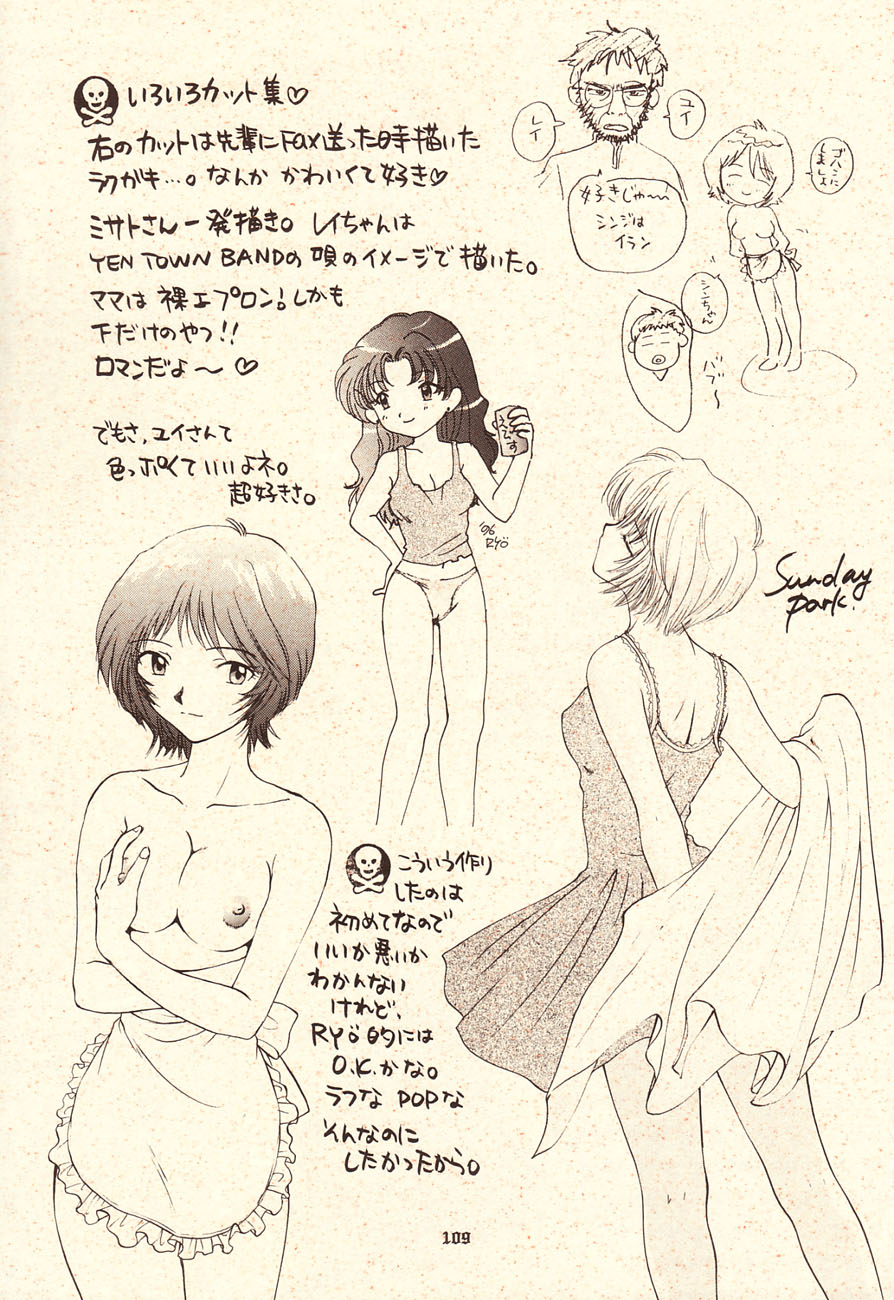 いろいろカット集♡
右のカットは先輩にFax送った時描いた
ラクガキ…。なんか かわいくて好き♡
ミサトさん一発描き。レイちゃんは
YEN TOWN BANDの 唄のイメージで描いた。
ママは 裸エプロン!しかも
下だけのやつ!!
ロマンだよ〜♡
でもさ,ユイさんて
色っぽくていいよネ。
超好きさ。
レイ
ユイ
好きじゃ〜
シンジは
イラン
ゴハンに
しましょ
シンちゃん
バブ〜
えびす
'96
RYÖ
Sunday
park.
こういう作り
したのは
初めてなので
いいか悪いか
わかんない
けれど、
RYÖ的には
O.K.かな。
ラフな POPな
そんなのに
したかったから。
109